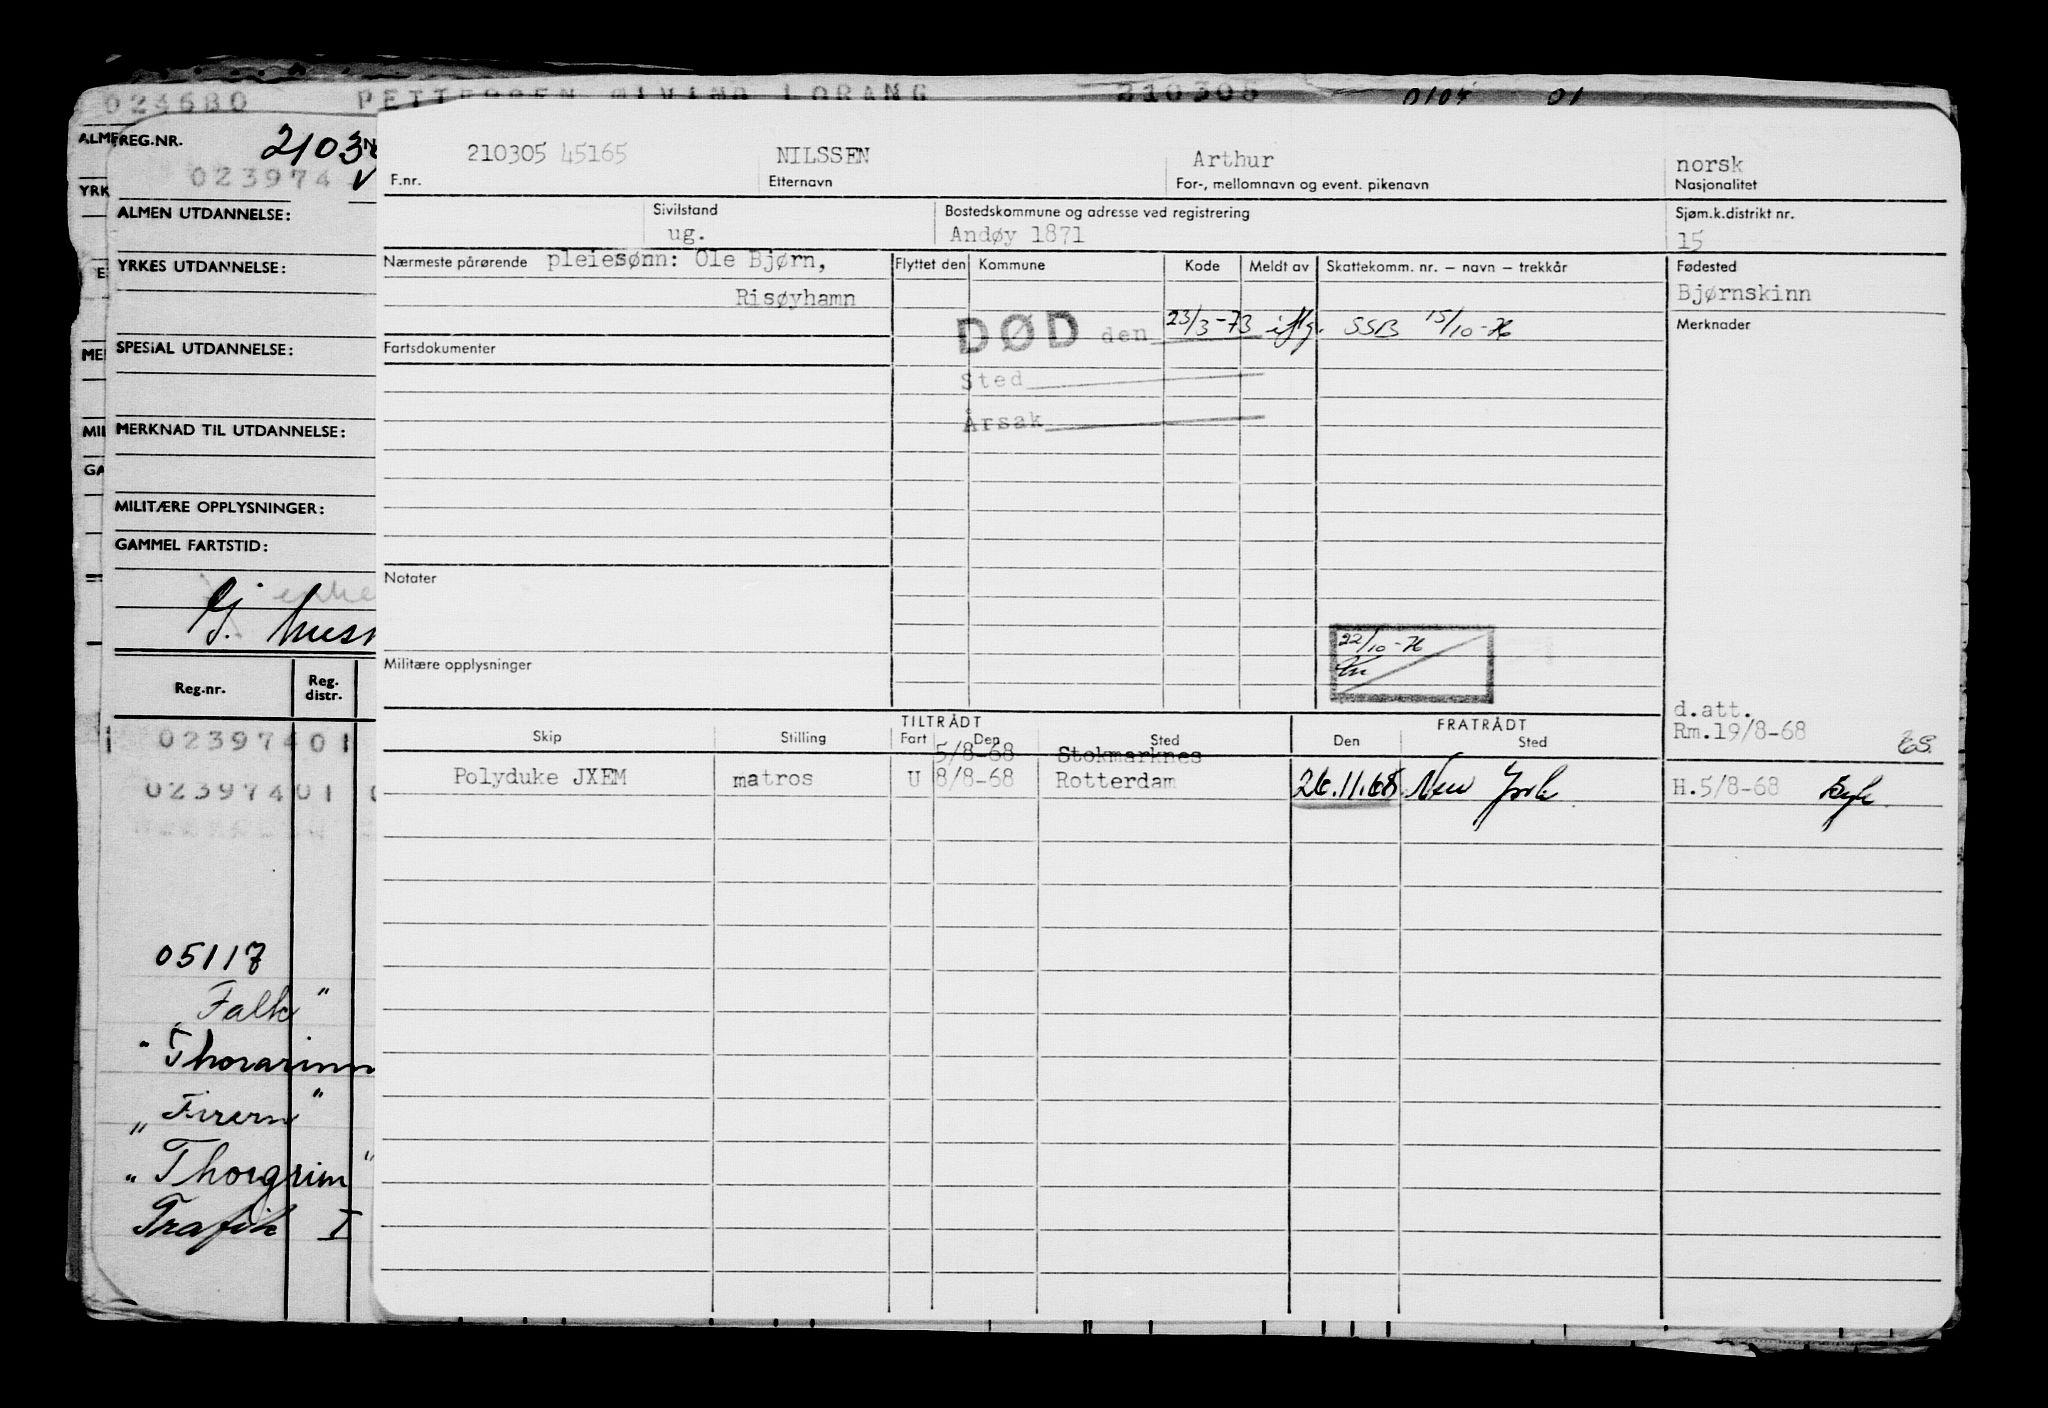 023680 PETTERSEN ØIVIND LORANG 210305 0104 01
REG.NR.
023974
ALMEN UTDANNELSE:
YRKES UTDANNELSE:
SPESIAL UTDANNELSE:
MERKNAD TIL UTDANNELSE:
MILITÆRE OPPLYSNINGER:
GAMMEL FARTSTID:
Reg.nr. Reg. distr.
02397401
02397401
05117
"Falk"
"Thorarinn
"Firern"
"Thorgrim"
Trafik I
210305 45165 NILSSEN Arthur norsk
F.nr. Etternavn For-, mellomnavn og event. pikenavn Nasjonalitet
Sivilstand Bostedskommune og adresse ved registrering Sjøm.k.distrikt nr.
ug. Andøy 1871 15
Nærmeste pårørende pleiesønn: Ole Bjørn, Flyttet den Kommune Kode Meldt av Skattekomm. nr. – navn – trekkår Fødested
Risøyhamn Bjørnskinn
DØD den 23/3-73 iflg. SSB 15/10-76 Merknader
Fartsdokumenter
Sted
Årsak
Notater
22/10-76
Militære opplysninger
d.att.
TILTRÅDT FRATRÅDT Rm.19/8-68
Skip Stilling Fart Den Sted Den Sted
5/8-68 Stokmarknes
Polyduke JXEM matros U 8/8-68 Rotterdam 26.11.68. New York H.5/8-68